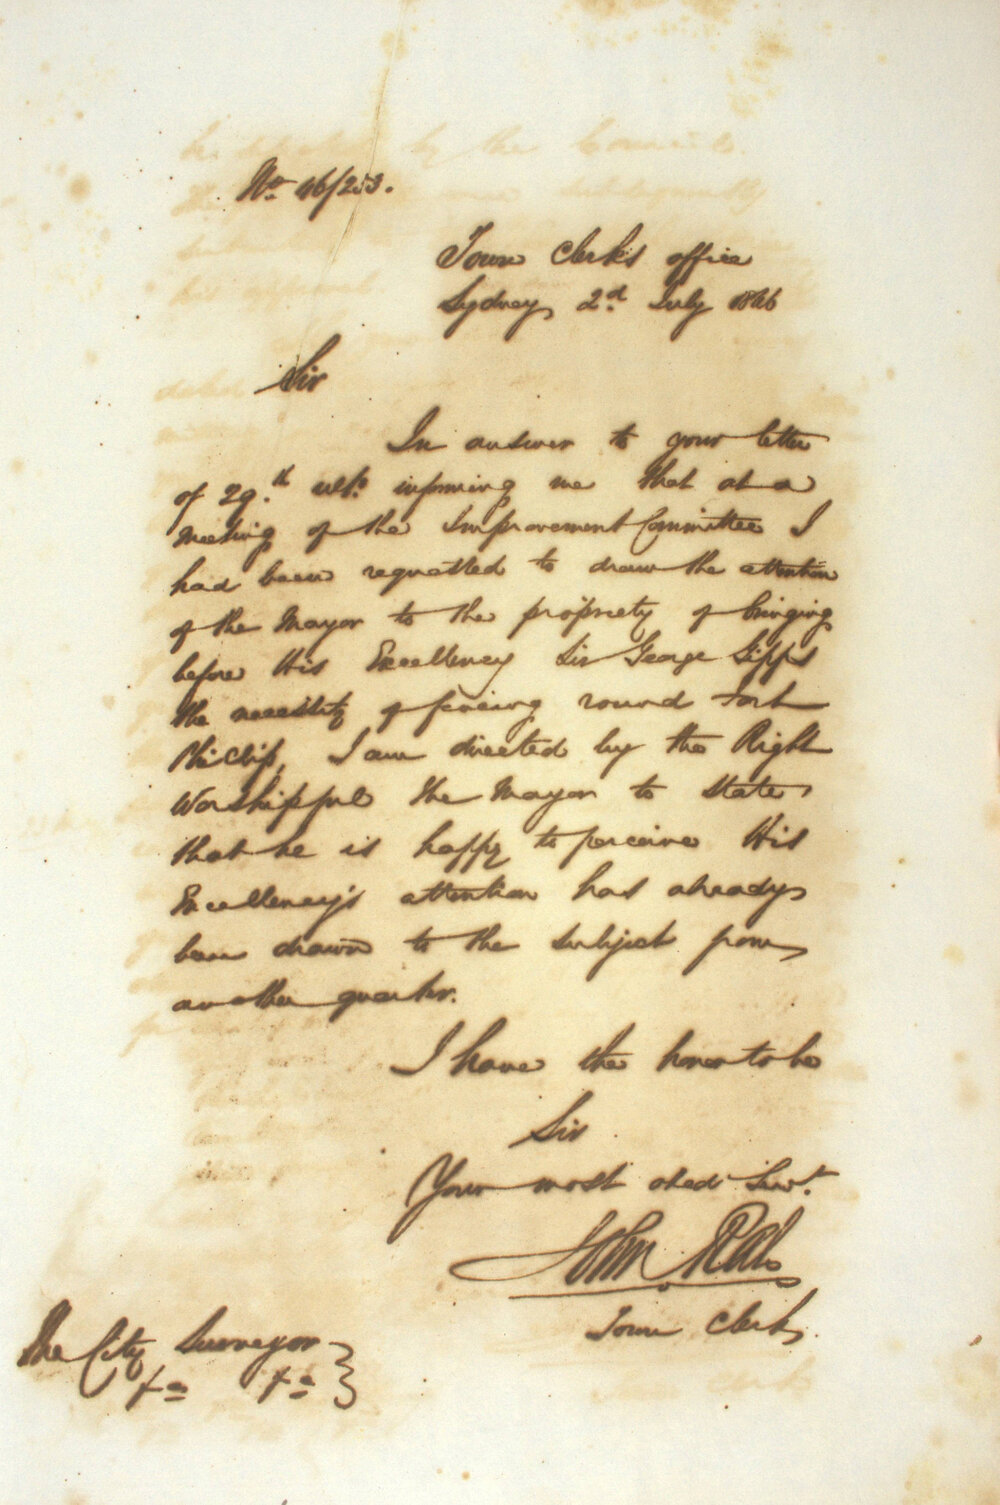 No. 46/253.
Town Clerk's office
Sydney 2d July 1846
Sir
In answer to your letter
of 29.th ulto. informing me that at a
meeting of the Improvement Committee I
had been requested to draw the attention
of the Mayor to the propriety of bringing
before His Excellency Sir George Gipps
the necessity of fencing round Fort
Phillip, I am directed by the Right
Worshipful the Mayor to state
that he is happy to perceive His
Excellency's attention has already
been drawn to the subject from
another quarter.
I have the honor to be
Sir
Your most obedt. Servt.
John Rae
Town Clerk.
The City Surveyor
&c &c